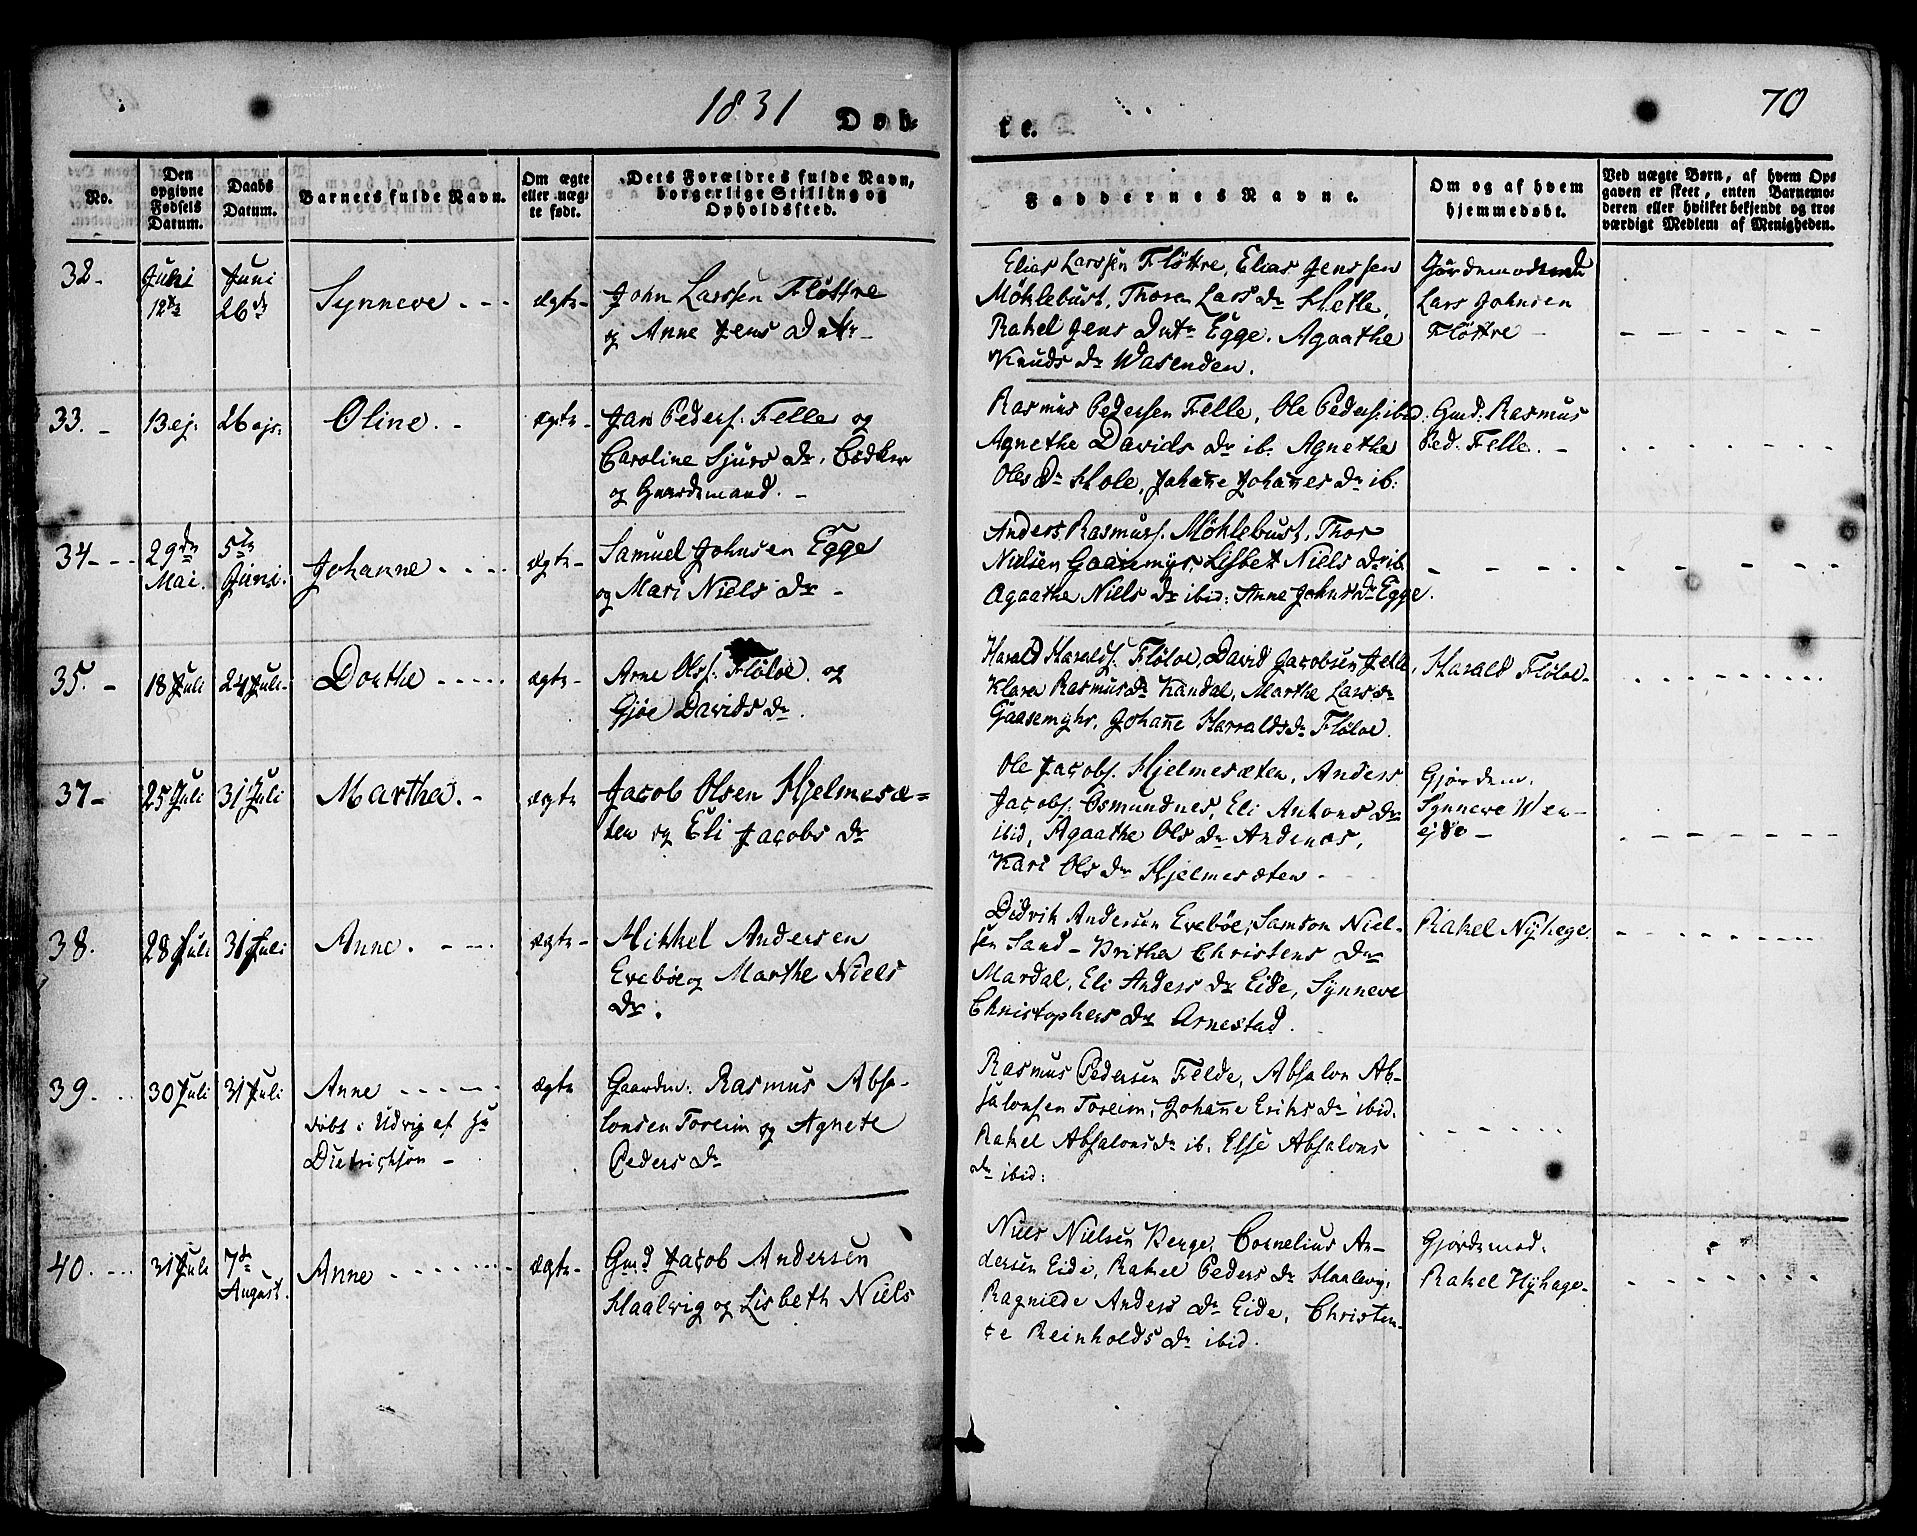 1831
Døb-
te.
70
No.
Den opgivne Fødsels Datum.
Daabs Datum.
Barnets fulde Navn.
Om ægte eller uægte født.
Dets Forældres fulde Navn, borgerlige Stilling og Opholdssted.
Faddernes Navne.
Om og af hvem hjemmedøbt.
Ved uægte Børn, af hvem Opgaven er skeet, enten Barnemoderen eller hvilket bekjendt og troværdigt Medlem af Menigheden.
32-
Juni 12te
Juni 26de
Synneve
ægte-
John Larssen Fløttre
og Anne Jens Datr-
Elias Larssen Fløttre, Elias Jenssen
Møhlebust, Thoren Lars Dr Hetle,
Rakel Jens Datr Egge. Agaathe
Knuds Dr Wasenden.
Gjørdemoderen
Lars Johnsen
Fløttre -
33. -
13 ej:
26 ejs:
Oline. -
ægte-
Jan Peders: Felle og
Caroline Sjurs Dr, Bødker
og Gaardsmand. -
Rasmus Pedersen Felle, Ole Peders: ibid:
Agnethe Davids Dr ib. Agnethe
Ols Dr Hole, Johanne Johannes Dr ib:
Gmd. Rasmus
Ped. Felle. -
34-
29de Mai.
5te Juni.
Johanne
ægte-
Samuel Johnsen Egge
og Mari Niels Dr -
Anders Rasmuss. Møhlebust, Thor
Nielsen Gaasemyr, Lisbet Niels Dr ib.
Agaathe Niels Dr ibid: Anne Johns Dr Egge.
35. -
18 Juli
24 Juli-
Dorthe
ægte-
Arne Olss: Fløloe og
Gjøe Davids Dr.
Harald Haralds: Fløloe, David Jacobsen Felle,
Klara Rasmus Dr Kandal, Marthe Lars Dr
Gaasemyhr, Johanne Harralds Dr Fløloe.
Harald Fløloe-
37-
25 Juli
31 Juli
Martha. -
ægte
Jacob Olsen Hjelmesæ=
ten og Eli Jacobs Dr
Ole Jacobs. Hjelmesæten, Anders
Jacobs. Osmundnes, Eli Antons Dr
ibid, Agaathe Ols Dr Andenæs,
Kari Ols Dr Hjelmesæten -
Gjørdem.
Synneve Wen-
38.
28 Juli
31 Juli
Anne.
ægte-
Mikkel Andersen
Evebøe og Marthe Niels
Dr.
Didrik Andersen Evebøe, Samson Niel-
sen Sand - Britha Christens Dr
Mardal, Eli Anders Dr Eide, Synneve
Christophers Dr Arnestad.
Rakel Nyhege.
39.
30 Juli
31 Juli
Anne
døbt i Udvig af Hr
Diedrichson -
ægte
Gaardm: Rasmus Absa-
lonsen Toreim og Agnete
Peders Dr
Rasmus Pedersen Felde, Absalon Ab-
salonsen Toreim, Johanne Eriks Dr ibid.
Rakel Absalons Dr ib. Else Absalons
Dr ibid:
40.
31 Juli
7de August.
Anne
ægte-
Gmd Jacob Andersen
Haalvig og Lisbeth Niels
Niels Nielsen Berge, Cornelius An-
dersen Eide, Rakel Peders Dr Haalevig,
Ragnilde Anders Dr Eide, Christen-
ce Reinholds Dr ibid.
Gjørdemod.
Rakel Nyhage-